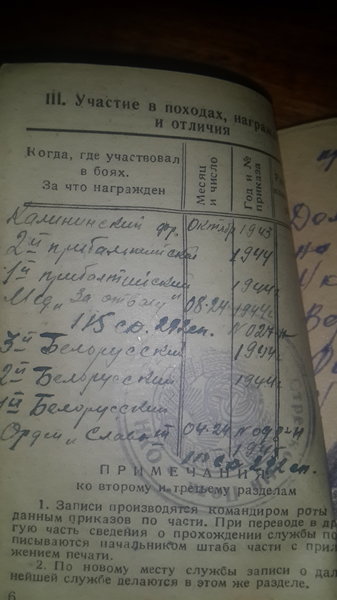 III. Участие в походах, награж
и отличия
Когда, где участвовал
в боях.
За что награжден
Месяц
и число
Год и №
приказа
Калининский фр. Октяб 1943
2й прибалтийской 1944
1й прибалтийский 1944г
Мед „За отвагу" 08.24 1944г
115 сд. 292 сп. N027
3й Белорусский 1944
2й Белорусский 1944г
1й Белорусский
Орден „Славы 04.24
1945
292 сп.
ПРИМЕЧАНИЯ
ко второму и третьему разделам
1. Записи производятся командиром роты
данным приказов по части. При переводе в др
гую часть сведения о прохождении службы по
писываются начальником штаба части с прил
жением печати.
2. По новому месту службы записи о дал
нейшей службе делаются в этом же разделе.
6